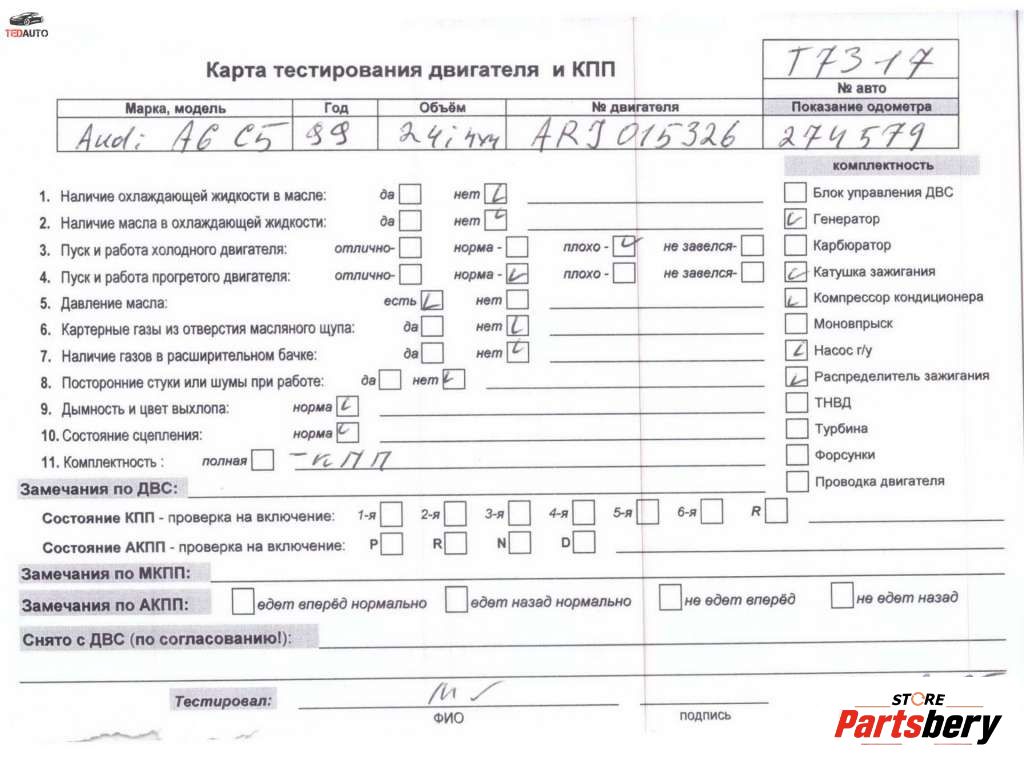 TEDAUTO
Карта тестирования двигателя и КПП
T7317
№ авто
Марка, модель Год Объём № двигателя Показание одометра
Audi A6 C5 99 2.4i ARJ 015326 274579
комплектность
1. Наличие охлаждающей жидкости в масле: да нет
Блок управления ДВС
2. Наличие масла в охлаждающей жидкости: да нет
Генератор
3. Пуск и работа холодного двигателя: отлично- норма - плохо - не завелся-
Карбюратор
4. Пуск и работа прогретого двигателя: отлично- норма - плохо - не завелся-
Катушка зажигания
5. Давление масла: есть нет
Компрессор кондиционера
6. Картерные газы из отверстия масляного щупа: да нет
Моновпрыск
7. Наличие газов в расширительном бачке: да нет
Насос г/у
8. Посторонние стуки или шумы при работе: да нет
Распределитель зажигания
9. Дымность и цвет выхлопа: норма
ТНВД
10. Состояние сцепления: норма
Турбина
11. Комплектность : полная - КПП
Форсунки
Замечания по ДВС:
Проводка двигателя
Состояние КПП - проверка на включение: 1-я 2-я 3-я 4-я 5-я 6-я R
Состояние АКПП - проверка на включение: P R N D
Замечания по МКПП:
Замечания по АКПП: едет вперёд нормально едет назад нормально не едет вперёд не едет назад
Снято с ДВС (по согласованию!):
Тестировал:
ФИО подпись
STORE
Partsbery